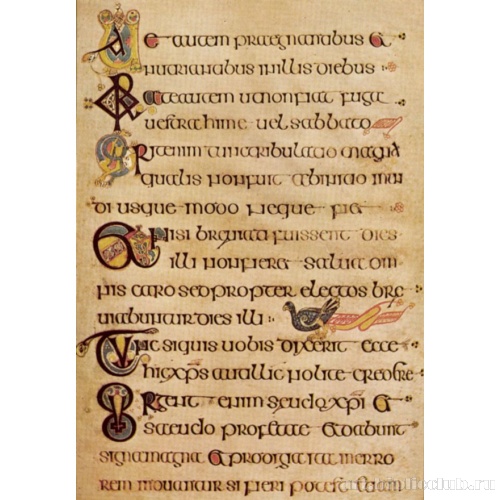 Uae autem praegnantibus &
nutriantibus inillis diebus
Orate autem utnonfiat fuga
uestra hime uel sabbato
Erit enim tunc tribulatio magna
qualis non fuit abinitio mun
di usque modo neque fiet
& nisi breuiati fuissent dies
illi non fieret salua om
nis caro sed propter electos bre
uiabuntur dies illi
Tunc siquis uobis dixerit ecce
hic xps aut illic nolite credere
Surgent enim seudoxpi &
seudo profetae & dabunt
signa magna & prodigia ita
rem si fieri potest